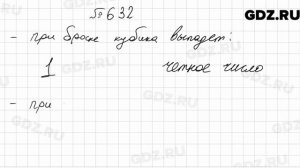 GDZ.RU
№632
- при броске кубика выпадет:
1 четное число
- при